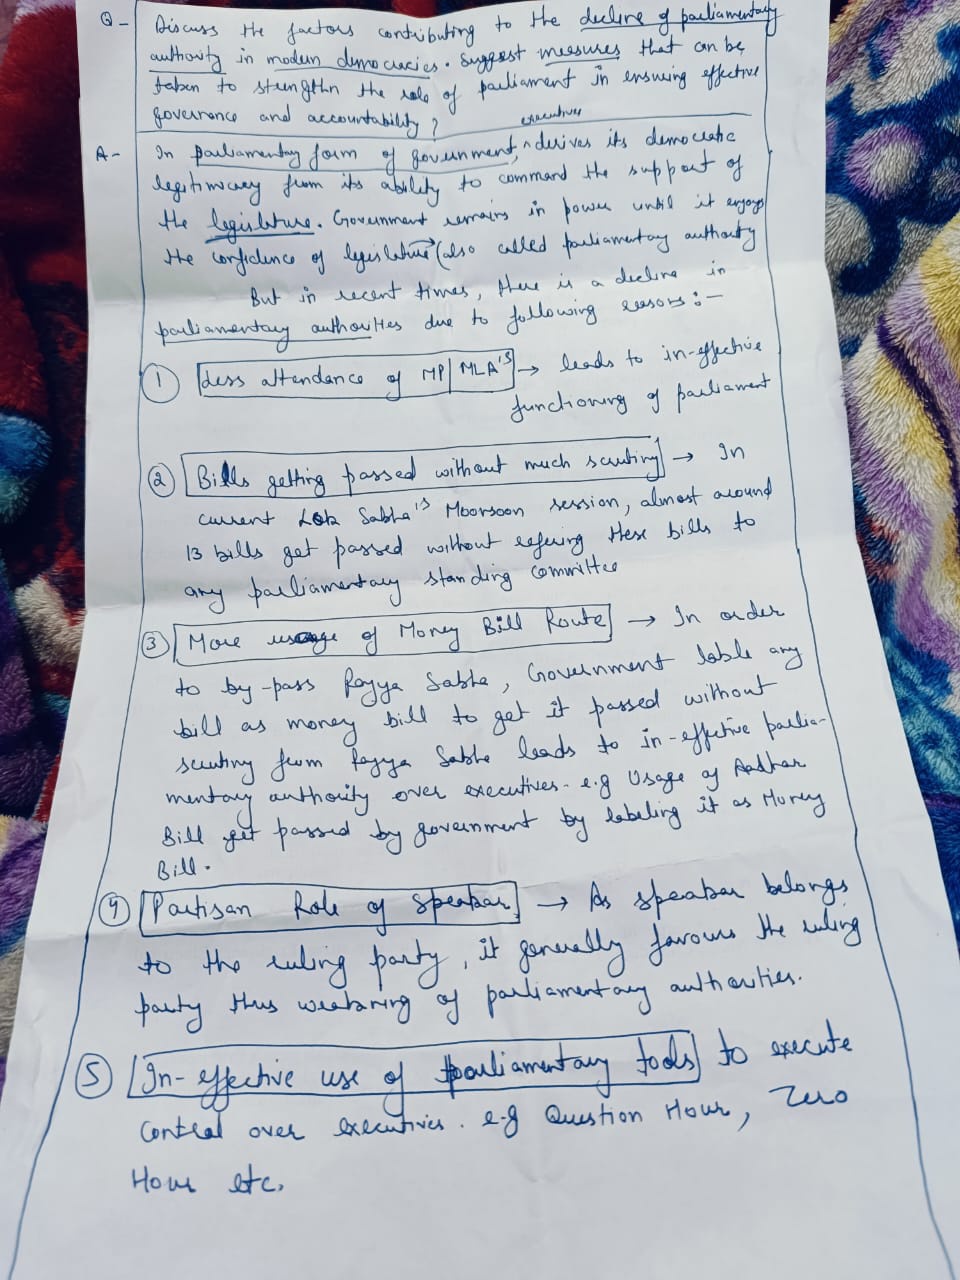 Q- Discuss the factors contributing to the decline of parliamentary
authority in modern democracies. Suggest measures that can be
taken to strengthn the role of parliament in ensuring effective
governance and accountability?
executives
A- In parliamentary form of government, ^ derives its democratic
legitimacy from its ability to command the support of
the legislature. Government remains in power until it enjoys
the confidence of legislature (also called parliamentary authority
But in recent times, there is a decline in
parliamentary authorities due to following reasons:-
① Less attendance of MP/MLA's → leads to in-effective
functioning of parliament
② Bills getting passed without much scrutiny → In
current Lok Sabha's Moonsoon session, almost around
13 bills get passed without refering these bills to
any parliamentary standing committee
③ More usage of Money Bill Route → In order
to by-pass Rajya Sabha, Government lable any
bill as money bill to get it passed without
scrutiny from Rajya Sabha leads to in-effective parlia-
mentary authority over executives. e.g Usage of Aadhar
Bill get passed by government by labeling it as Money
Bill.
④ Partisan Role of Speaker → As speaker belongs
to the ruling party, it generally favours the ruling
party thus weakaring of parliamentary authorities.
⑤ In-effective use of parliamentary tools to execute
control over executives. e.g Question Hour, Zero
Hour etc.